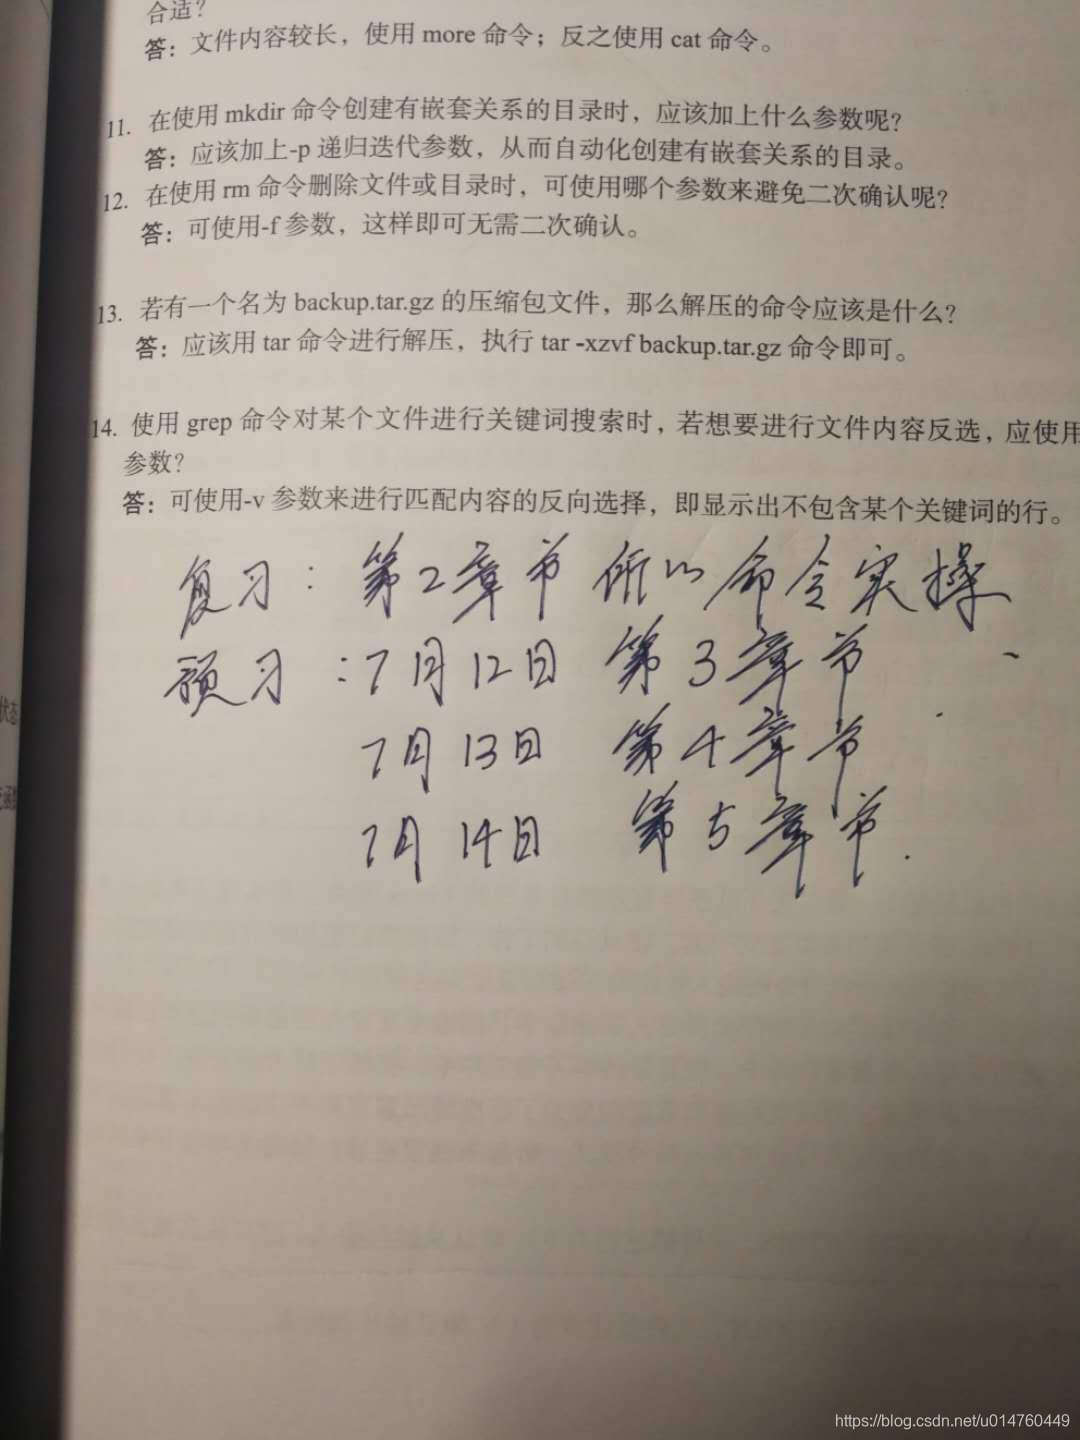 合适？
答：文件内容较长，使用 more 命令；反之使用 cat 命令。
11. 在使用 mkdir 命令创建有嵌套关系的目录时，应该加上什么参数呢？
答：应该加上-p 递归迭代参数，从而自动化创建有嵌套关系的目录。
12. 在使用 rm 命令删除文件或目录时，可使用哪个参数来避免二次确认呢？
答：可使用-f 参数，这样即可无需二次确认。
13. 若有一个名为 backup.tar.gz 的压缩包文件，那么解压的命令应该是什么？
答：应该用 tar 命令进行解压，执行 tar -xzvf backup.tar.gz 命令即可。
14. 使用 grep 命令对某个文件进行关键词搜索时，若想要进行文件内容反选，应使用
参数？
答：可使用-v 参数来进行匹配内容的反向选择，即显示出不包含某个关键词的行。
复习：第2章节 所以命令实操
预习：7月12日 第3章节
7月13日 第4章节
7月14日 第5章节.
状态
https://blog.csdn.net/u014760449